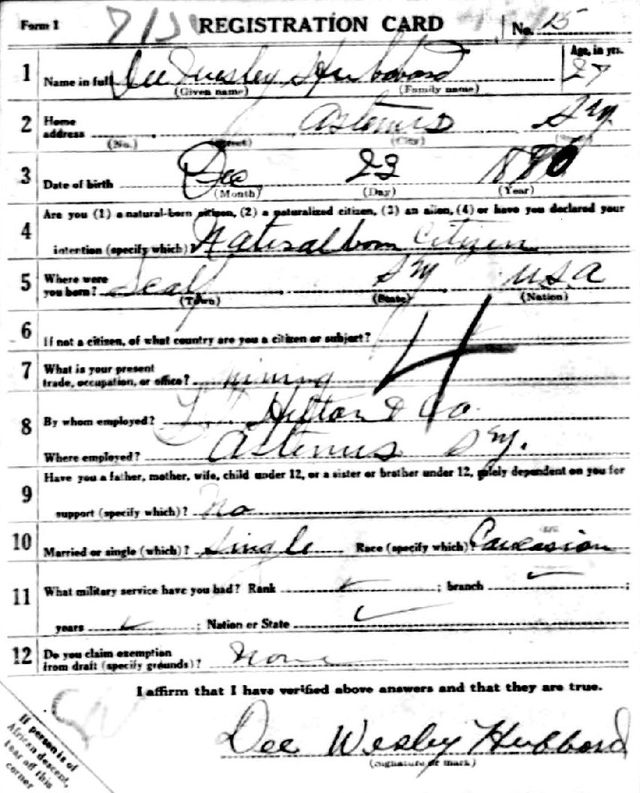 Form 1 REGISTRATION CARD No. 25
Age, in yrs.
1 Name in full Dee Wesley Hubbard 27
(Given name) (Family name)
2 Home address Artemus Ky.
(No.) (Street) (City) (State)
3 Date of birth Dec 23
(Month) (Day) (Year)
Are you (1) a natural-born citizen, (2) a naturalized citizen, (3) an alien, (4) or have you declared your
4 intention (specify which)? Natural born Citizen
5 Where were you born? Scalf Ky U.S.A
(Town) (State) (Nation)
6 If not a citizen, of what country are you a citizen or subject?
7 What is your present trade, occupation, or office? mining
4
8 By whom employed? Hilton & Co.
Where employed? Artemus Ky.
Have you a father, mother, wife, child under 12, or a sister or brother under 12, solely dependent on you for
9 support (specify which)? No
10 Married or single (which)? Single Race (specify which)? Caucasion
11 What military service have you had? Rank ; branch ;
years ; Nation or State
12 Do you claim exemption from draft (specify grounds)? None
I affirm that I have verified above answers and that they are true.
Dee Wesley Hubbard
(Signature or mark)
If person is of
African descent,
tear off this
corner